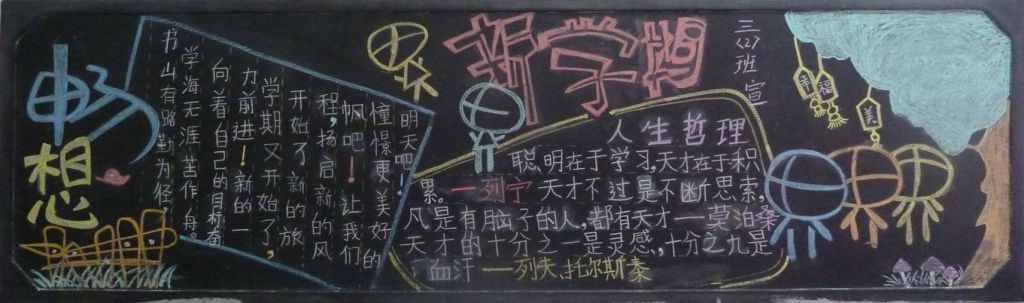 畅想
书山有路勤为径,
学海无涯苦作舟。
向着自己的目标奋
力前进!新的一
学期又开始了,
开始了新的旅
程,扬启新的风
帆吧!让我们
憧憬更美好的
明天吧!
新学期
三(2)班 宣
人生哲理
聪明在于学习,天才在于积
累。一列宁 天才不过是不断思索,
凡是有脑子的人,都有天才一莫泊桑
天才的十分之一是灵感,十分之九是
血汗一列夫.托尔斯泰
幸福
美